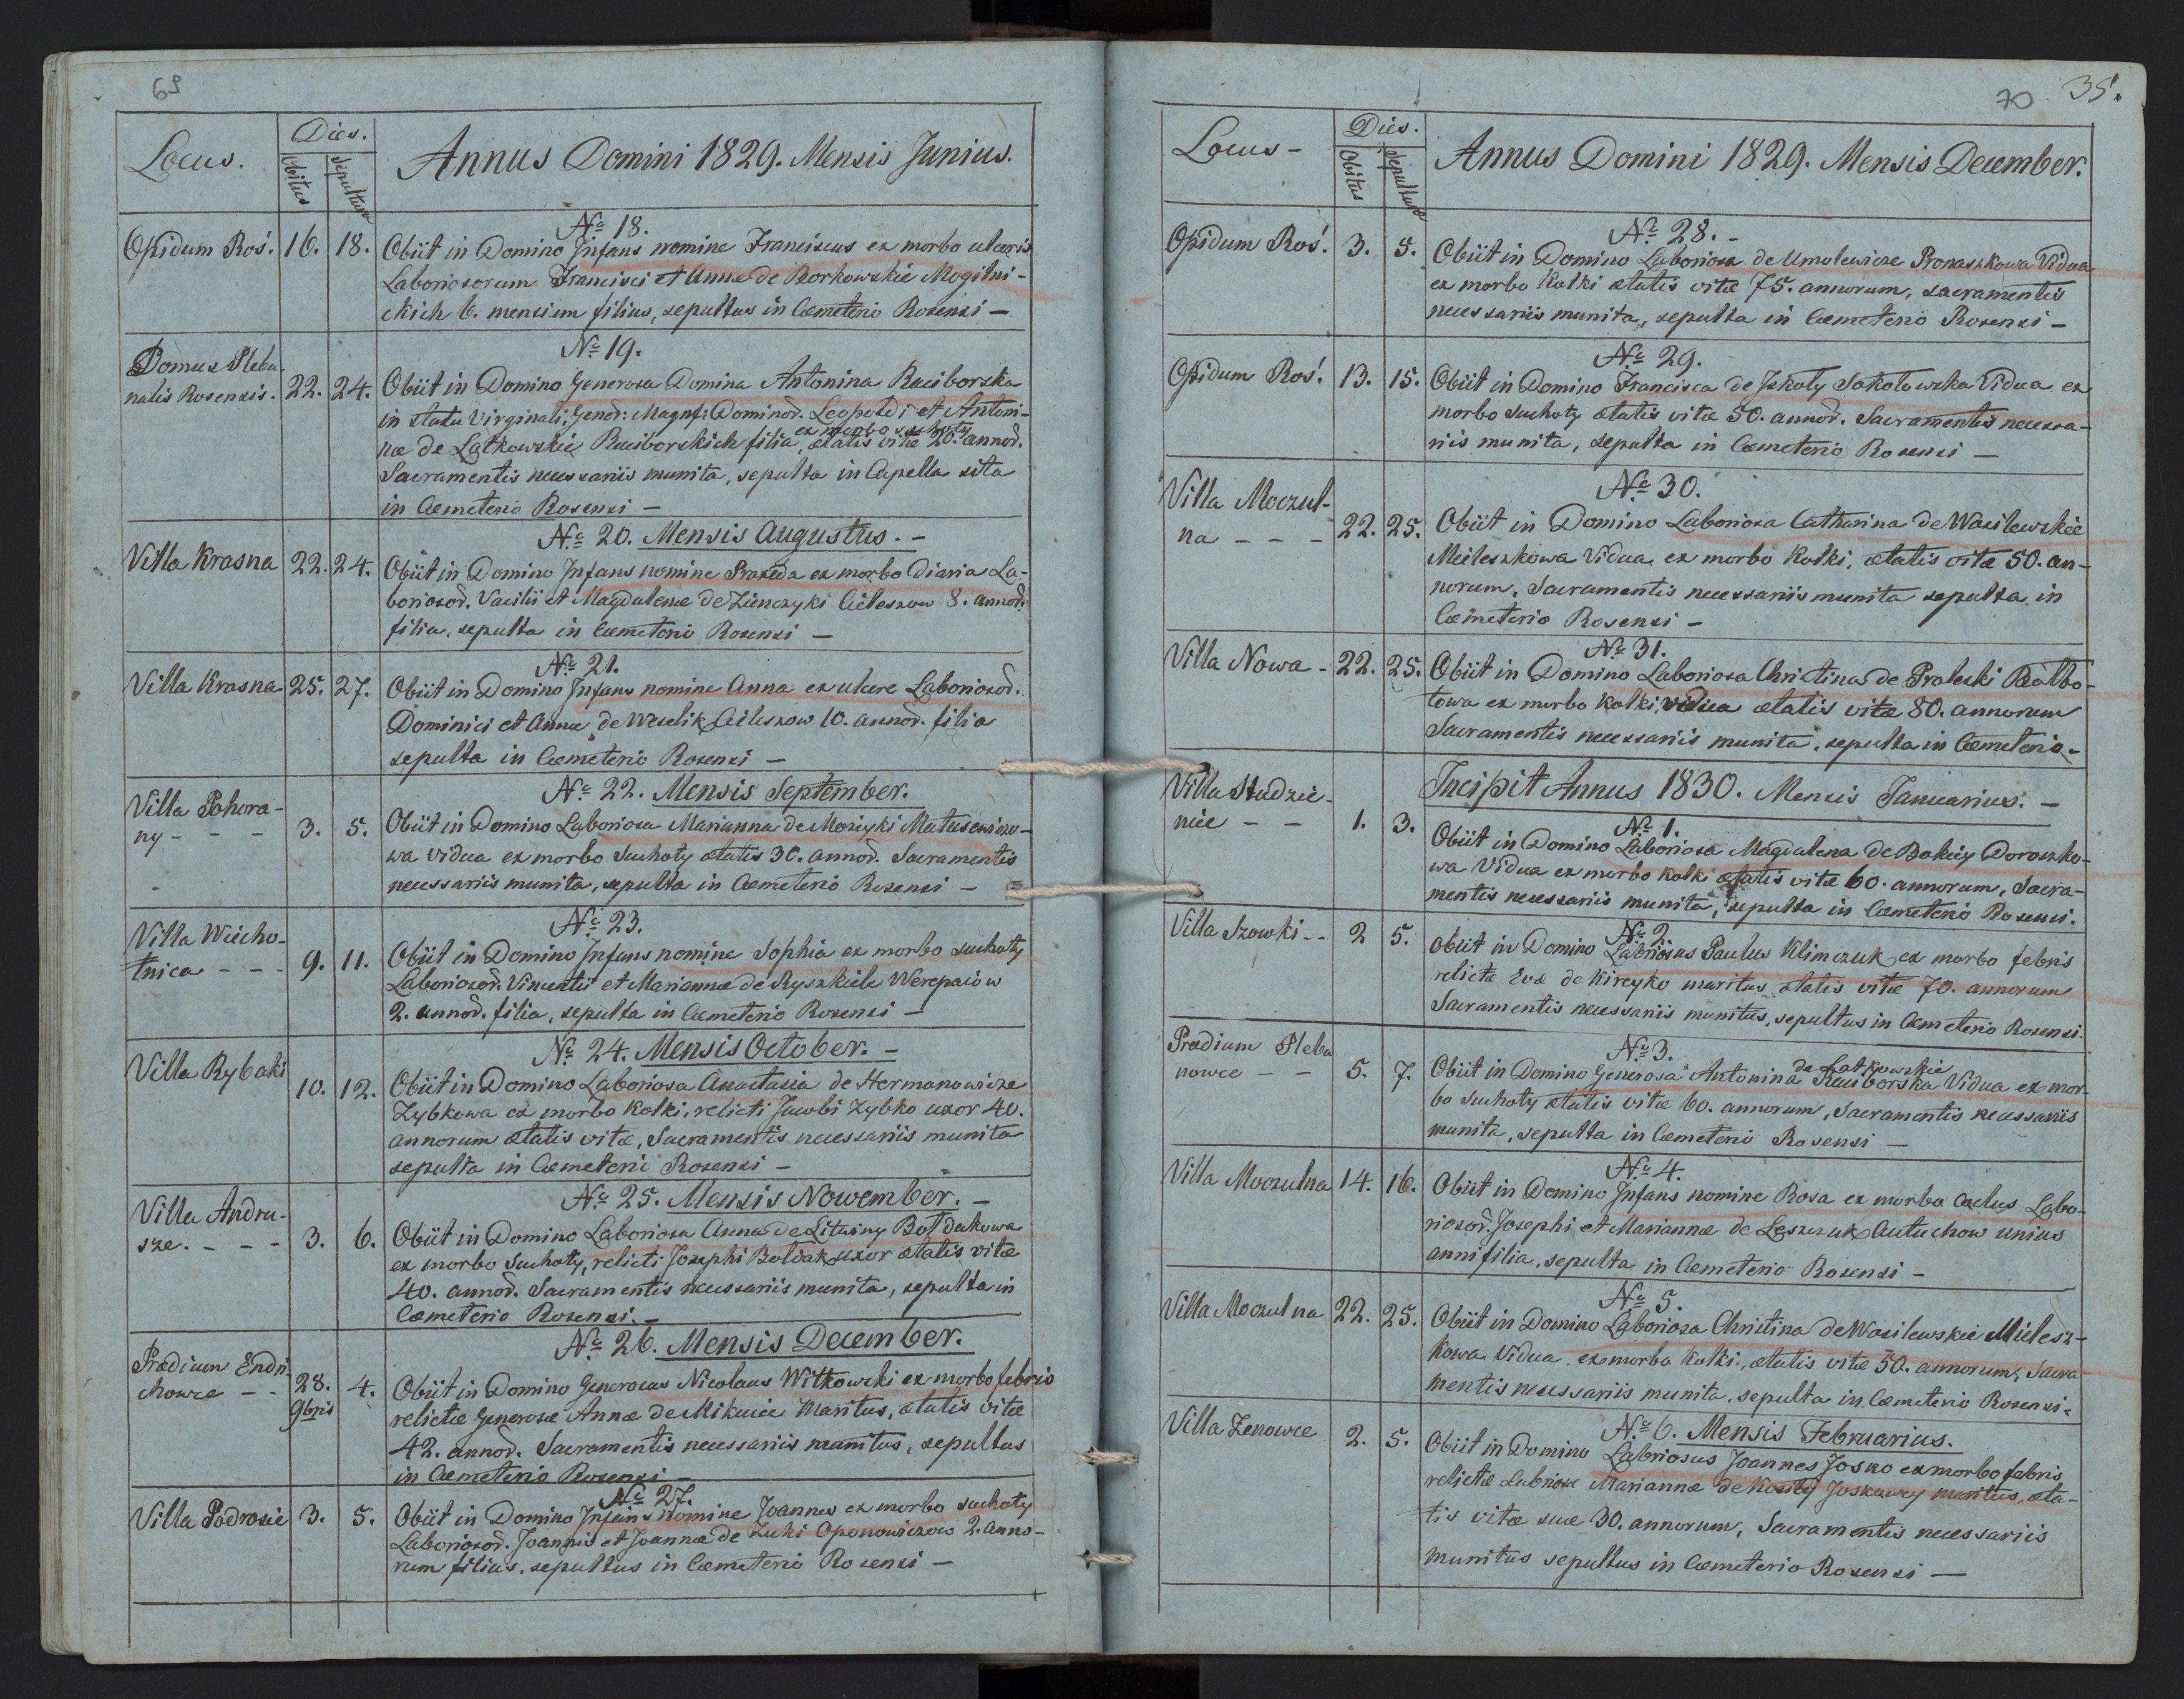 69
Locus.
Dies.
Obitus
Sepultura
Annus Domini 1829. Mensis Junius.
Nº 18.
Opidum Roś. 16. 18. Obiit in Domino Infans nomine Franciscus ex morbo ulceris
Laboriosorum Francisci et Annæ de Borkowskie Mogilni-
ckich 6. mensium filius, sepultus in Cæmeterio Rosensi —
Nº 19.
Domus Pleba-
nalis Rosensis. 22. 24. Obiit in Domino Generosa Domina Antonina Raciborska
in statu Virginali, Gener: Magnf: Dominor. Leopoldi et Antoni-
næ de Latkowskie Raciborskich filia, ex morbo suchoty ætatis vitæ 20. annor.
Sacramentis necessariis munita, sepulta in Capella sita
in Cæmeterio Rosensi —
Nº 20. Mensis Augustus. —
Villa Krasna 22. 24. Obiit in Domino Infans nomine Praxeda ex morbo Diaria La-
boriosor. Vasilii et Magdalenæ de Zienczyki Cieleszow 8. annor.
filia, sepulta in Cæmeterio Rosensi —
Nº 21.
Villa Krasna 25. 27. Obiit in Domino Infans nomine Anna ex ulcere Laboriosor.
Dominici et Annæ de Weselik Cieleszow 10. annor. filia
sepulta in Cæmeterio Rosensi —
Nº 22. Mensis September.
Villa Pohora-
ny - - - 3. 5. Obiit in Domino Laboriosa Marianna de Możeyki Matusewiczo-
wa vidua ex morbo Suchoty ætatis 30. annor. Sacramentis
necessariis munita, sepulta in Cæmeterio Rosensi —
Nº 23.
Villa Wiecho-
tnica - - - 9. 11. Obiit in Domino Infans nomine Sophia ex morbo suchoty
Laboriosor. Vincentii et Mariannæ de Ryszkiele Werepaiow
2. annor. filia, sepulta in Cæmeterio Rosensi —
Nº 24. Mensis October. —
Villa Rybaki 10. 12. Obiit in Domino Laboriosa Anastasia de Hermanowicze
Zybkowa ex morbo Kolki, relicti Jacobi Zybko uxor 40.
annorum ætatis vitæ, Sacramentis necessariis munita
sepulta in Cæmeterio Rosensi —
Nº 25. Mensis Nowember. —
Villa Andru-
sze. - - - 3. 6. Obiit in Domino Laboriosa Anna de Lituiny Bołdakowa
ex morbo Suchoty, relicti Josephi Boldak uxor ætatis vitæ
40. annor. Sacramentis necessariis munita, sepulta in
Cæmeterio Rosensi. —
Nº 26. Mensis December.
Prædium Endri-
chowce - - 28. 9bris 4. Obiit in Domino Generosus Nicolaus Witkowski ex morbo febris
relictæ Generosæ Annæ de Mikucie Maritus, ætatis vitæ
42. annor. Sacramentis necessariis manitus, sepultus
in Cæmeterio Rosensi —
Nº 27.
Villa Podrosie 3. 5. Obiit in Domino Infans nomine Joannes ex morbo suchoty
Laboriosor. Joannis et Joannæ de Zuki Oponowiczow 2. anno-
rum filius, sepultus in Cæmeterio Rosensi —
70 35.
Locus -
Dies.
Obitus
Sepultura
Annus Domini 1829. Mensis December.
Nº 28. -
Opidum Roś. 3. 5. Obiit in Domino Laboriosa de Umolewicze Pronaszkowa Vidua
ex morbo Kolki ætatis vitæ 75. annorum, sacramentis
necessariis munita, sepulta in Cæmeterio Rosensi —
Nº 29.
Opidum Roś. 13. 15. Obiit in Domino Francisca de Jskoły Sokołowska Vidua ex
morbo Suchoty ætatis vitæ 50. annor. Sacramentis necessa-
riis munita, sepulta in Cæmeterio Rosensi —
Nº 30.
Villa Moczul-
na - - - 22. 25. Obiit in Domino Laboriosa Catharina de Wasilewskie
Mieleszkowa Vidua, ex morbo Kolki, ætatis vitæ 50. an-
norum, Sacramentis necessariis munita sepulta in
Cæmeterio Rosensi —
Nº 31.
Villa Nowa - 22. 25. Obiit in Domino Laboriosa Christina de Praleski Bołbo-
towa ex morbo Kolki, vidua ætatis vitæ 80. annorum
Sacramentis necessariis munita, sepulta in Cæmeterio -
Incipit Annus 1830. Mensis Januarius. —
Nº 1.
Villa Studzie-
nice - - 1. 3. Obiit in Domino Laboriosa Magdalena de Bokiey Doroszko-
wa Vidua ex morbo kolki ætatis vitæ 60. annorum, Sacra-
mentis necessariis munita, sepulta in Cæmeterio Rosensi.
Nº 2.
Villa Szowki - - 2 5. Obiit in Domino Labriosus Paulus Klimczuk ex morbo febris
relictæ Evæ de Kireyko maritus ætatis vitæ 70. annorum
Sacramentis necessariis munitus, sepultus in Cæmeterio Rosensi.
Nº 3.
Prædium Pleba
nowce - - 5. 7. Obiit in Domino Generosa Antonina de Latkowskie Raciborska Vidua ex mor-
bo Suchoty ætatis vitæ 60. annorum, Sacramentis necessariis
munita, sepulta in Cæmeterio Rosensi —
Nº 4.
Villa Moczulna 14. 16. Obiit in Domino Infans nomine Rosa ex morbo Labo-
riosor. Josephi et Mariannæ de Leszczuk Autuchow unius
anni filia, sepulta in Cæmeterio Rosensi —
Nº 5.
Villa Moczulna 22. 25. Obiit in Domino Laboriosa Christina de Wasilewskie Mielesz-
kowa Vidua ex morbo Kolki, ætatis vitæ 50. annorum, Sacra-
mentis necessariis munita, sepulta in Cæmeterio Rosensi.
Nº 6. Mensis Februarius.
Villa Zenowce 2. 5. Obiit in Domino Labriosus Joannes Josko ex morbo febris
relictæ Labriosæ Mariannæ de Joskowey maritus, æta-
tis vitæ suæ 30. annorum, Sacramentis necessariis
munitus sepultus in Cæmeterio Rosensi —